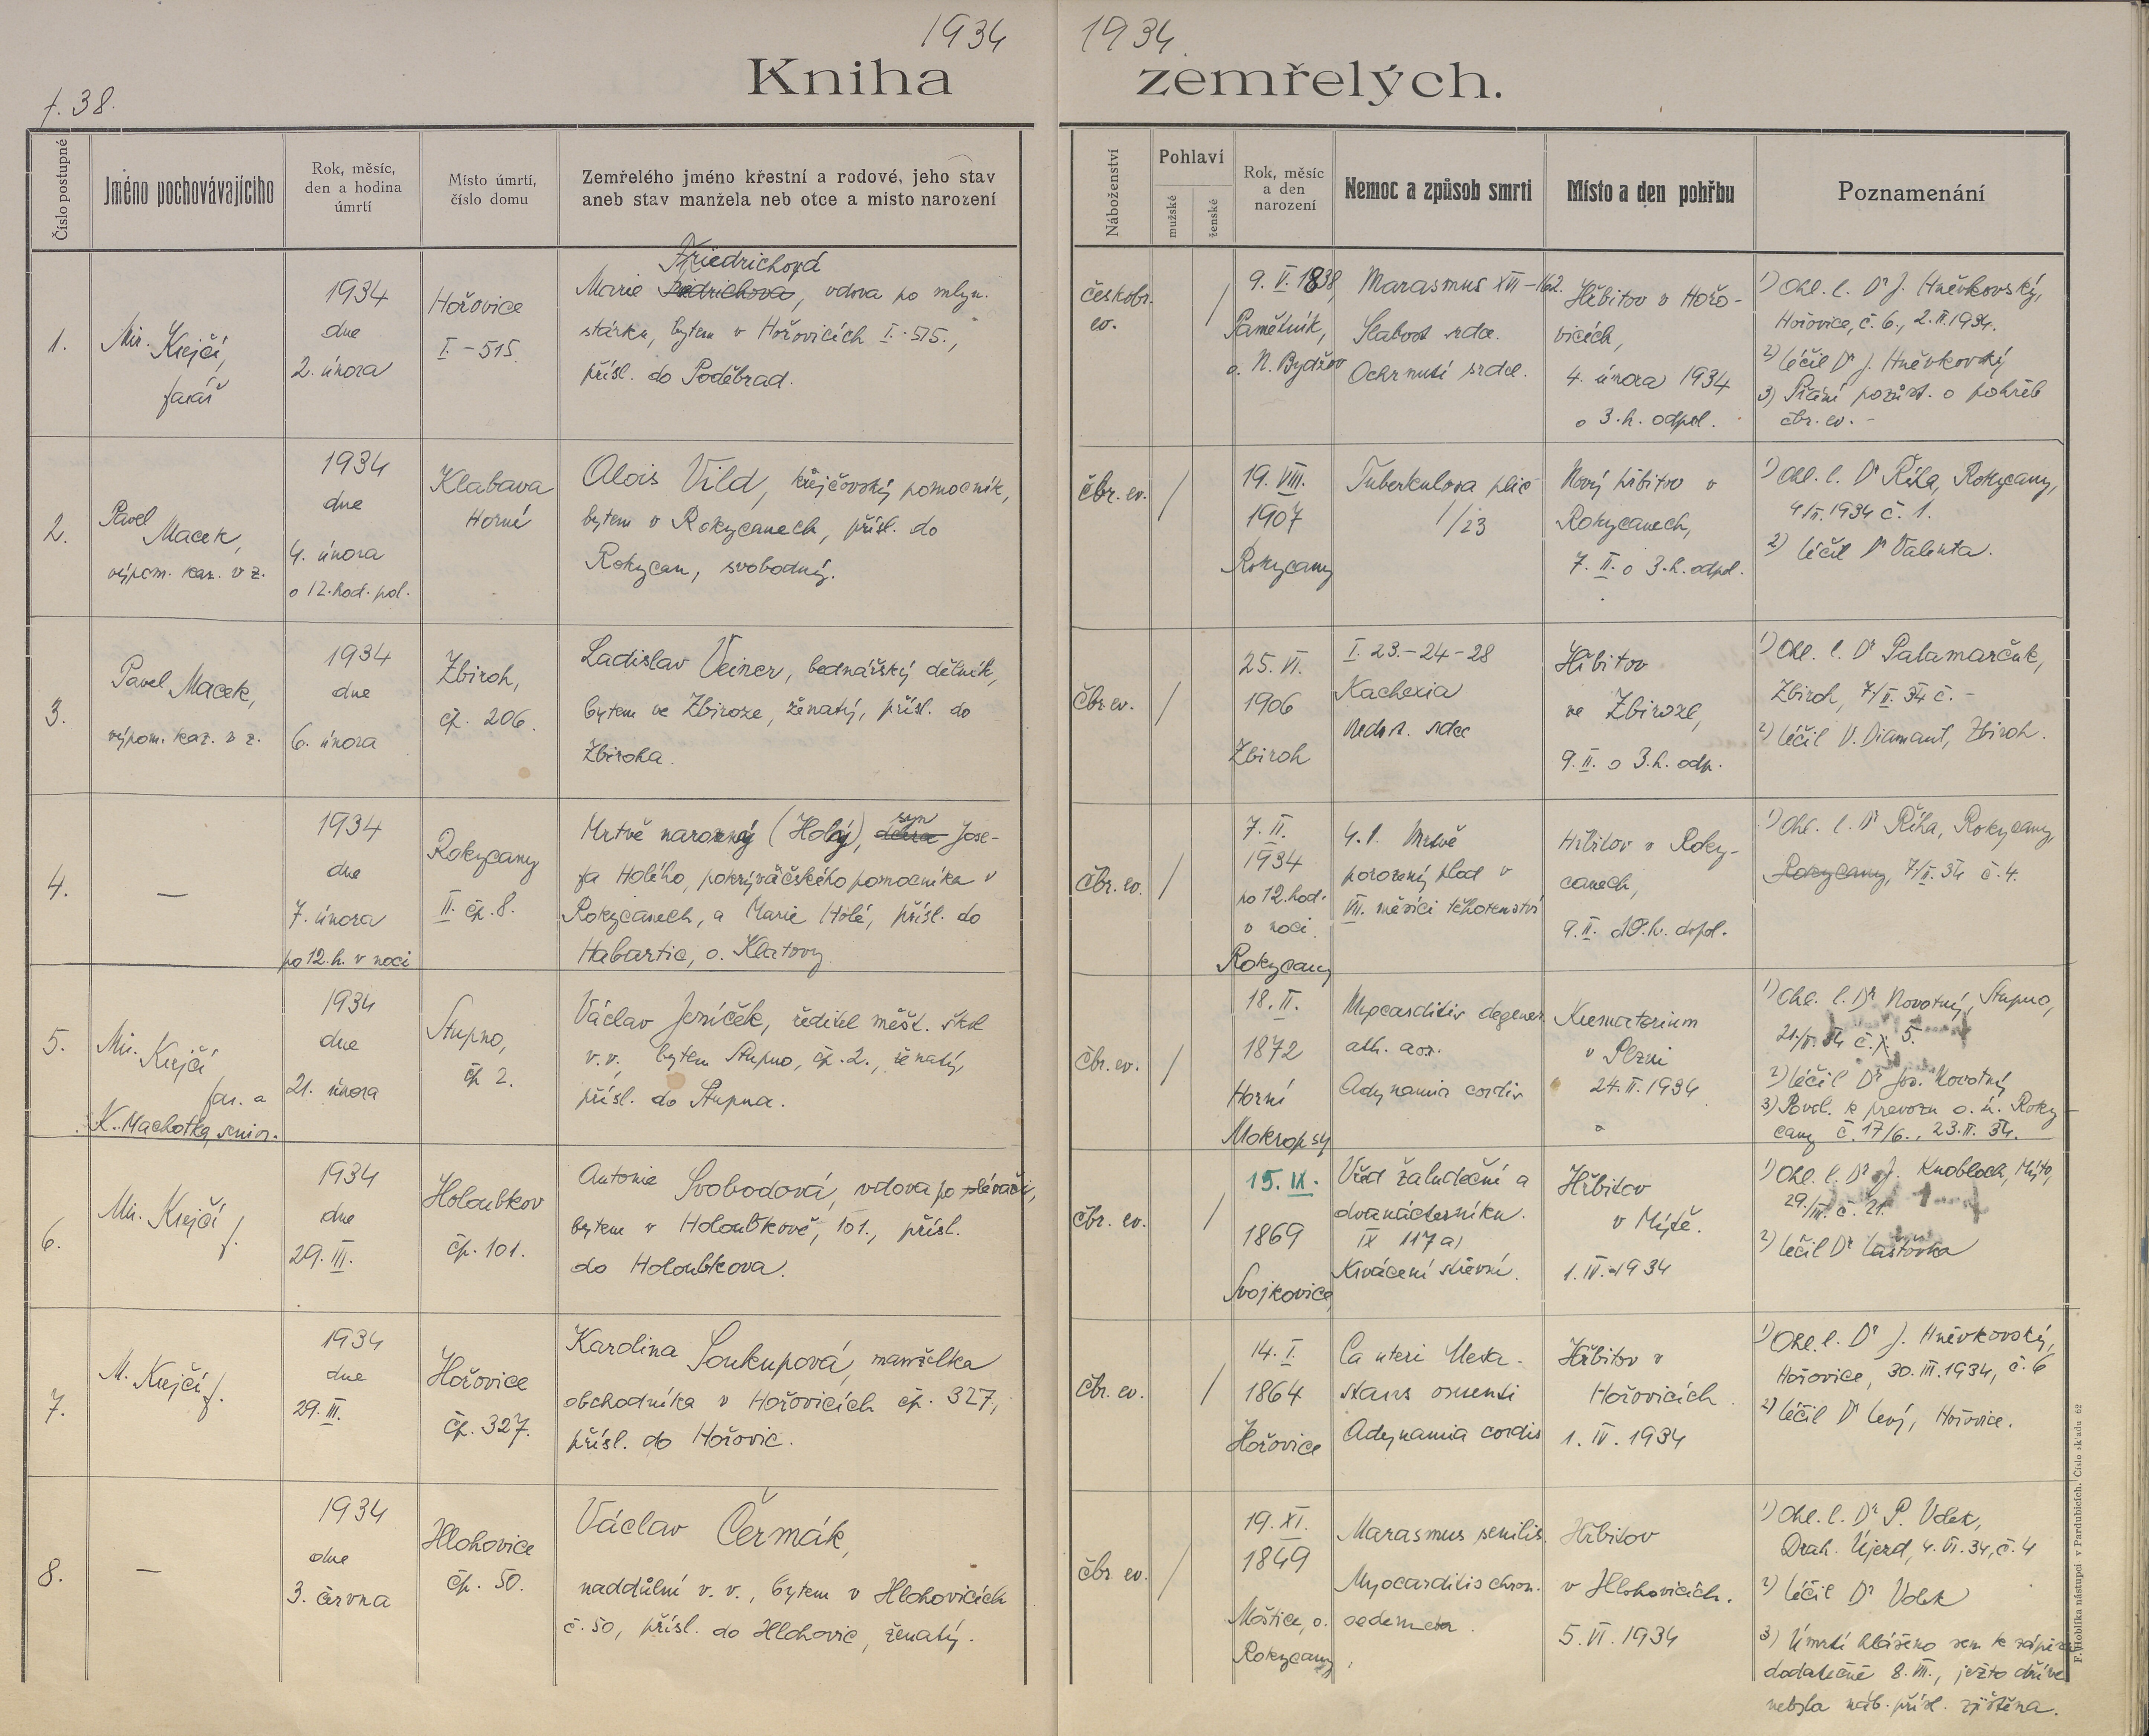 1934
1934
Kniha zemřelých.
f. 38.
Číslo postupné
Jméno pochovávajícího
Rok, měsíc,
den a hodina
úmrtí
Místo úmrtí,
číslo domu
Zemřelého jméno křestní a rodové, jeho stav
aneb stav manžela neb otce a místo narození
Náboženství
Pohlaví
mužské
ženské
Rok, měsíc
a den
narození
Nemoc a způsob smrti
Místo a den pohřbu
Poznamenání
1.
Mir. Krejčí,
farář
1934
dne
2. února
Hořovice
I. - 515.
Friedrichová
Marie Fridrichova, vdova po mlyn.
stárku, bytem v Hořovicích I. - 515.,
přísl. do Poděbrad.
českobr.
ev.
/
9. V. 1838,
Pamětník,
o. N. Bydžov
Marasmus XVII - 162.
Slabost srdce.
Ochrnutí srdce.
Hřbitov v Hořo-
vicích,
4. února 1934
o 3. h. odpol.
1) Ohl. l. Dr J. Hněvkovský,
Hořovice, č. 6., 2. II. 1934.
2) léčil Dr J. Hněvkovský
3) Přání pozůst. o pohřeb
čbr. ev. -
2.
Pavel
Macek,
výpom. kaz. v z.
1934
dne
4. února
o 12. hod. pol.
Klabava
Horní
Alois Vild, krejčovský pomocník,
bytem v Rokycanech, přísl. do
Rokycan, svobodný.
čbr. ev.
/
19. VIII.
1907
Rokycany
Tuberkulosa plic
1/23
Nový hřbitov v
Rokycanech,
7. II. o 3. h. odpol.
1) Ohl. l. Dr Říha, Rokycany,
4/II. 1934 č. 1.
2) léčil Dr Valenta.
3.
Pavel Macek,
výpom. kaz. v z.
1934
dne
6. února
Zbiroh,
čp. 206.
Ladislav Veiner, bednářský dělník,
bytem ve Zbiroze, ženatý, přísl. do
Zbiroha.
čbr. ev.
/
25. VI.
1906
Zbiroh
I. 23. - 24 - 28
Kachexia
Nedost. srdce
Hřbitov
ve Zbiroze,
9. II. o 3. h. odp.
1) Ohl. l. Dr Palamarčuk,
Zbiroh, 7/II. 34 č. -
2) léčil D. Diamant, Zbiroh.
4.
—
1934
dne
7. února
po 12. h. v noci
Rokycany
II. čp. 8.
syn
Mrtvě narozený (Holý), dcera Jose-
fa Holého, pokrývačského pomocníka v
Rokycanech, a Marie Holé, přísl. do
Habartic, o. Klatovy.
čbr. ev.
/
7. II.
1934
po 12. hod.
v noci.
Rokycany
4. 1. Mrtvě
porozený plod v
VII. měsíci těhotenství
Hřbitov v Roky-
canech,
9. II. 10. h. dopol.
1) Ohl. l. Dr Říha, Rokycany,
Rokycany, 7/II. 34 č. 4.
5.
Mir.
Krejčí
far. a
K. Machotka, senior.
1934
dne
21. února
Stupno,
čp 2.
Václav Jeníček, ředitel měšť. škol
v. v., bytem Stupno, čp. 2., ženatý,
přísl. do Stupna.
čbr. ev.
/
18. II.
1872
Horní
Mokropsy
Myocarditis degener
ath. aor.
Adynamia cordis
Krematorium
v Plzni
24. II. 1934
1) Ohl. l. Dr Novotný, Stupno,
21/II. 34 č. 5.
2) léčil Dr Jos. Novotný
3) Povol. k převozu o. ú. Roky-
cany č. 17/6., 23. II. 34.
6.
Mir. Krejčí
f.
1934
dne
29. III.
Holoubkov
čp. 101.
Antonie Svobodová, vdova po slévači,
bytem v Holoubkově, 101., přísl.
do Holoubkova.
čbr. ev.
/
15. IX.
1869
Svojkovice
Vřed žaludeční a
dvanácterníku.
IX 117 a)
Krvácení střevní.
Hřbitov
v Mýtě.
1. IV. 1934
1) Ohl. l. Dr J. Knobloch, Mýto,
29./III. č. 21.
2) léčil Dr Laštovka
7.
M. Krejčí f.
1934
dne
29. III.
Hořovice
čp. 327.
Karolina Soukupová, manželka
obchodníka v Hořovicích čp. 327,
přísl. do Hořovic.
čbr. ev.
/
14. I.
1864
Hořovice
Ca uteri Meta-
stases omenti
Adynamia cordis
Hřbitov v
Hořovicích.
1. IV. 1934
1) Ohl. l. Dr J. Hněvkovský,
Hořovice, 30. III. 1934, č. 6
2) léčil Dr Levý, Hořovice.
8.
—
1934
dne
3. června
Hlohovice
čp. 50.
Václav Čermák,
naddůlní v. v., bytem v Hlohovicích
č. 50, přísl. do Hlohovic, ženatý.
čbr. ev.
/
19. XI.
1849
Moštice, o.
Rokycany.
Marasmus senilis.
Myocarditis chron.
Hřbitov
v Hlohovicích.
5. VI. 1934
1) Ohl. l. Dr P. Volek,
Drah. Újezd, 4. VI. 34, č. 4
2) léčil Dr Volek
3) Úmrtí hlášeno sem k zápisu
dodatečně 8. VIII., ježto dříve
nebyla náb. přísl. zjištěna.
F. Hoblíka nástupci v Pardubicích. Číslo skladu 62